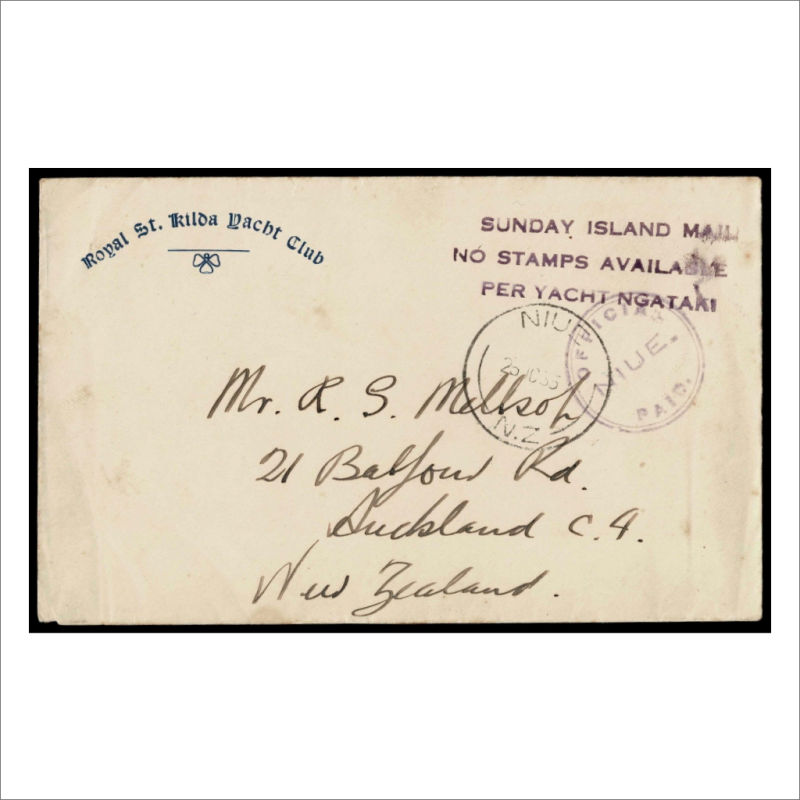 Royal St. Kilda Yacht Club
SUNDAY ISLAND MAIL
NO STAMPS AVAILABLE
PER YACHT NGATAKI
NIUE
N.Z.
OFFICIAL
NIUE.
PAID.
Mr. R. S.
21 Balfour Rd.
Auckland C.4.
New Zealand.